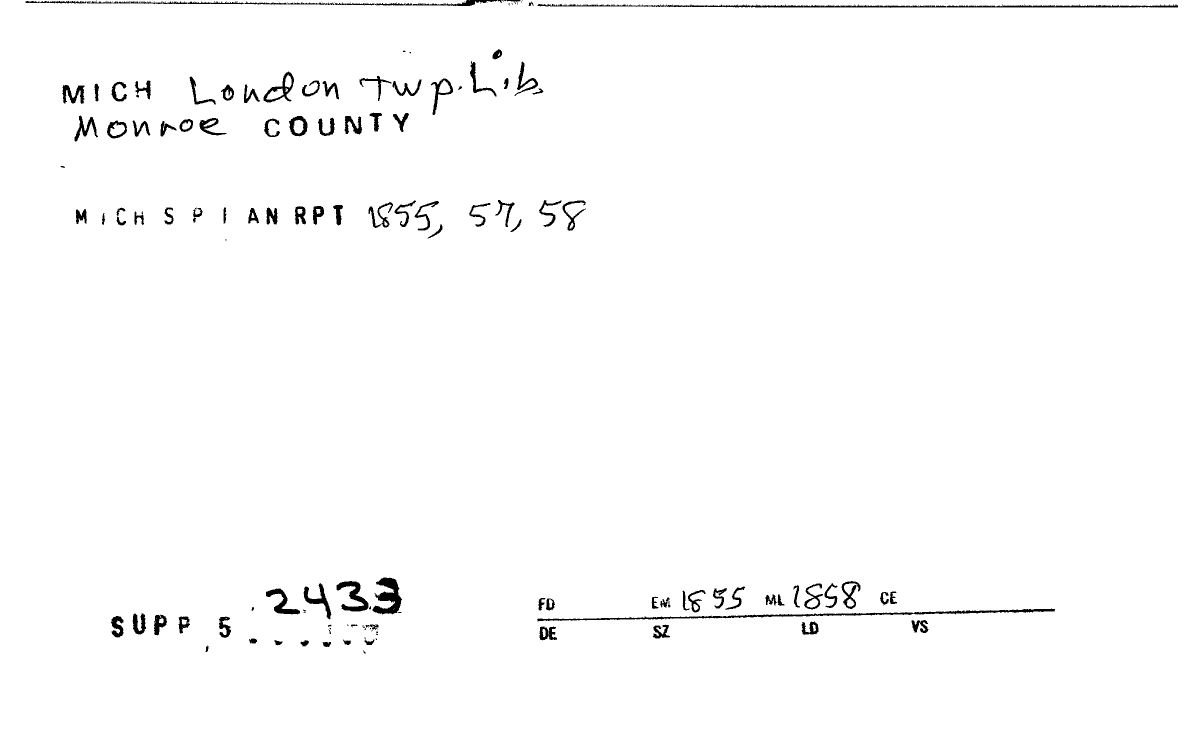 MICH London Twp. Lib.
Monroe COUNTY
MICH S P I AN RPT 1855, 57, 58
2433
SUPP 5
FD EM 1855 ML 1858 CE
DE SZ LD VS